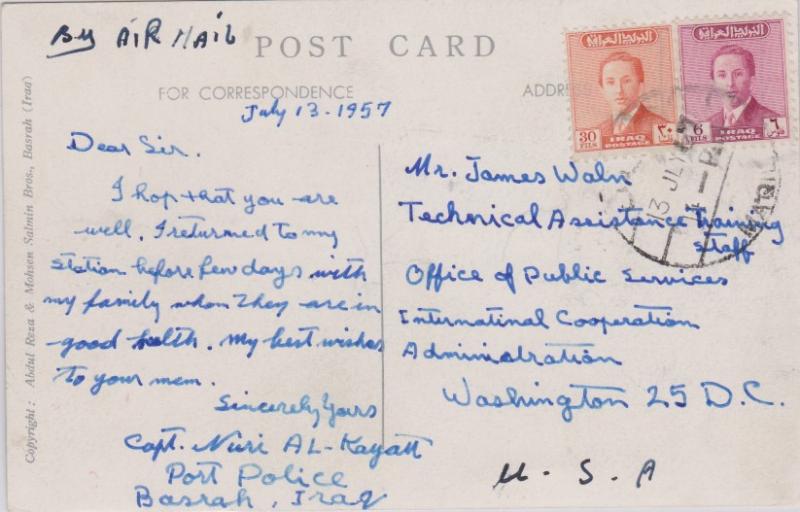 By AIR MAIL
POST CARD
FOR CORRESPONDENCE
ADDRESS
July 13-1957
Dear Sir.
I hop that you are
well. I returned to my
station before few days with
my family whom They are in
good helth. My best wishes
to your mem.
Sincerely Yours
Capt. Nuri AL-Kayatt
Port Police
Basrah, Iraq
Mr. James Waln
Technical Assistance Training
Staff
Office of Public Services
Internatinal Cooperation
Adminiatration
Washington 25 D.C.
U.S.A
30
FILS
٣٠
IRAQ
POSTAGE
6
FILS
٦
IRAQ
POSTAGE
13 JLY
Copyright: Abdul Reza & Mohsen Salmin Bros., Basrah (Iraq)